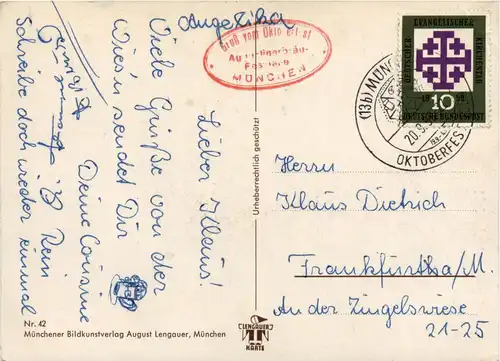 Angelika
Gruß vom Oktoberfest
Augustinerbräu-
Festhalle
MÜNCHEN
Lieber Klaus!
Viele Grüße von der
Wies'n sendet Dir
Deine Cousine
Schreibe doch wieder einmal
Urheberrechtlich geschützt
DEUTSCHER
EVANGELISCHER
KIRCHENTAG
10
DEUTSCHE BUNDESPOST
(13b) MÜN
20.9.
OKTOBERFES
Herrn
Klaus Dietrich
Frankfurt/a/M.
An der Zingelswiese
21-25
Nr. 42
Münchener Bildkunstverlag August Lengauer, München
LENGAUER
KARTE